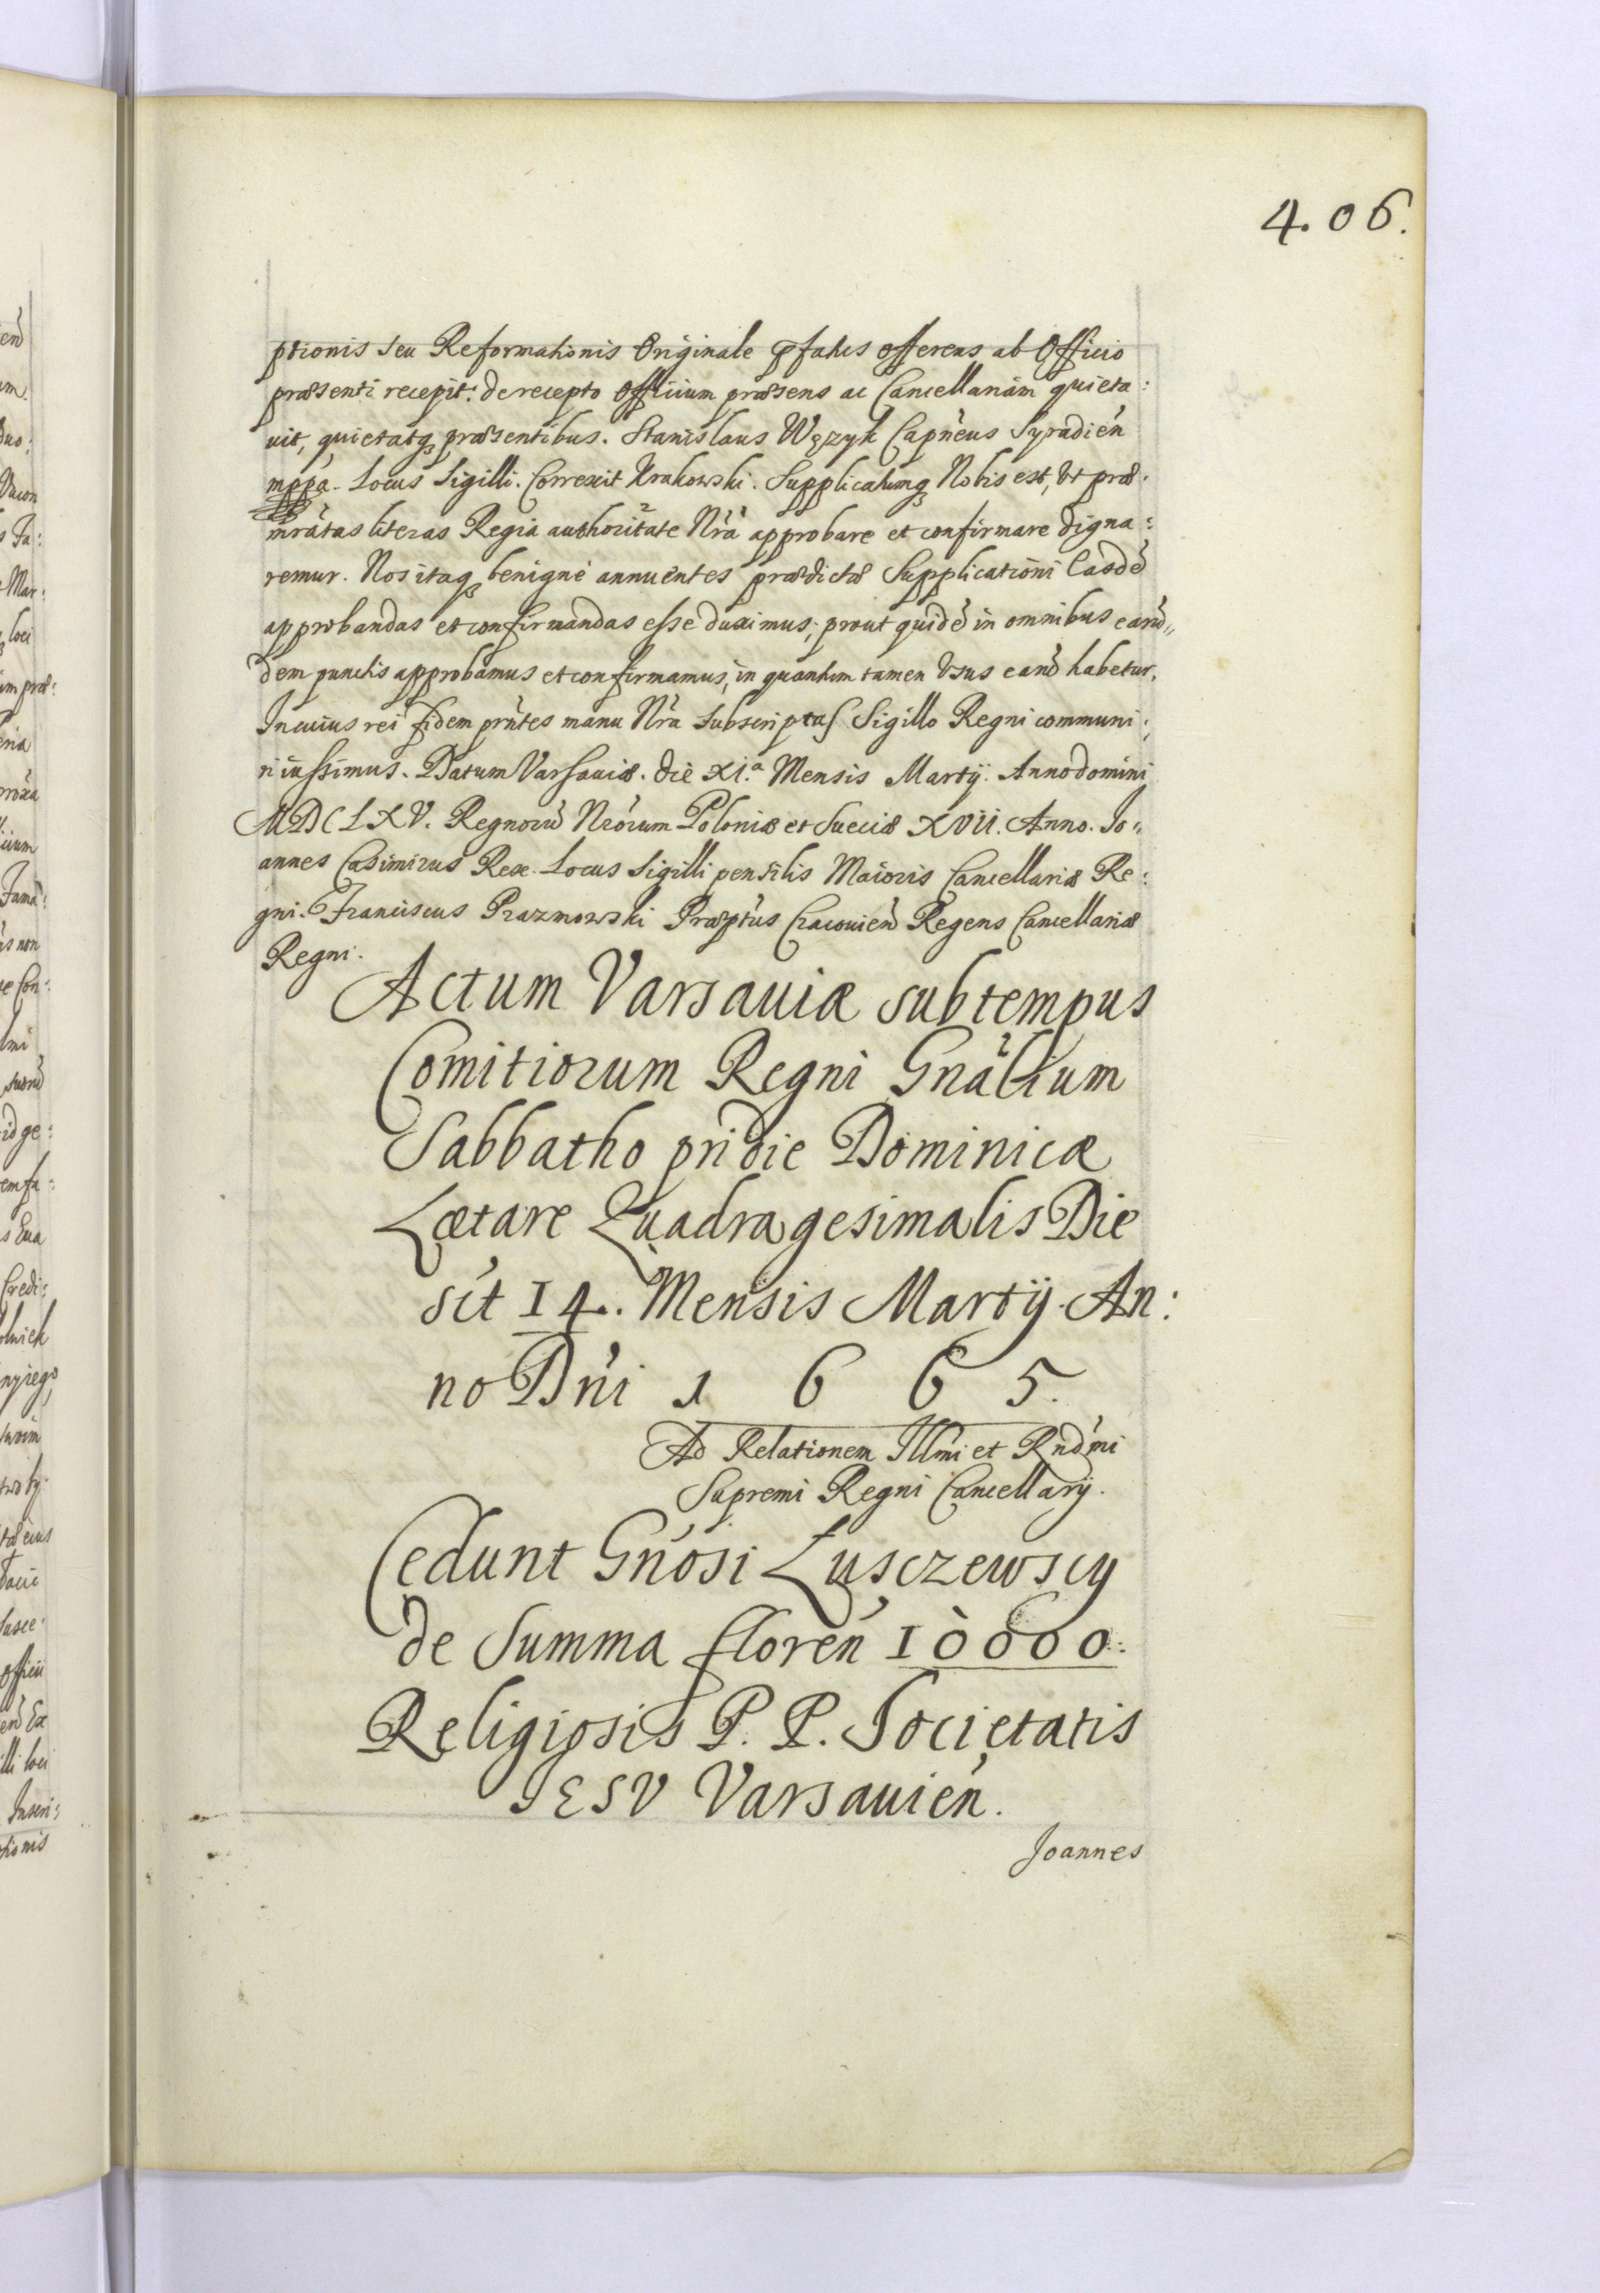 4.06.
ptionis seu Reformationis Originale pfatus offerens ab Officio
præsenti recepit: de recepto Officium præsens ac Cancellariam quieta:
uit, quietatq præsentibus. Stanislaus Węzyk Capn̄eus Syradien̄
mppa. Locus Sigilli. Correxit Krakowski. Supplicatumq Nobis est, Vt præ:
inràtas literas Regia authoritate Nrā approbare et confirmare digna:
remur. Nos itaq benigne annuentes prædictæ Supplicationi Easdē
approbandas et confirmandas esse duximus; prout quidē in omnibus earū„
dem punctis approbamus et confirmamus, in quantum tamen Vsus earū habetur.
In cuius rei fidem prn̄tes manu Nrā Subscriptas Sigillo Regni communi:
ri iussimus. Datum Varsauiæ. die XI.ª Mensis Martÿ. Anno domini
MDCLXV. Regnorū Nrōrum Poloniæ et Sueciæ XVII. Anno. Jo„
annes Casimirus Rex. Locus Sigilli pensilis Maioris Cancellariæ Re:
gni. Franciscus Prazmowski Præptūs Cracouien̄ Regens Cancellariæ
Regni.
Actum Varsauiæ sub tempus
Comitiorum Regni Gnālium
Sabbatho pridie Dominicæ
Lætare Quadragesimalis Die
sit 14. Mensis Martÿ. An:
no Dn̄i 1 6 6 5.
Ad Relationem Illmi et Rndmi
Supremi Regni Cancellarÿ.
Cedunt Gn̄osi Łusczewscy
de Summa floren̄ 10000.
Religiosis P. P. Societatis
IESV Varsauien̄.
Joannes